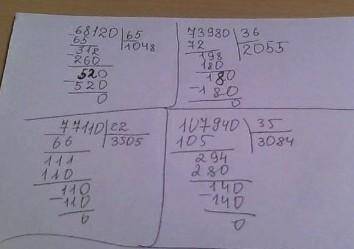 68120 65
65 1048
318
260
520
520
0
73980 36
72 2055
198
180
180
180
0
77110 22
66 3505
111
110
110
110
0
107940 35
105 3084
294
280
140
140
0